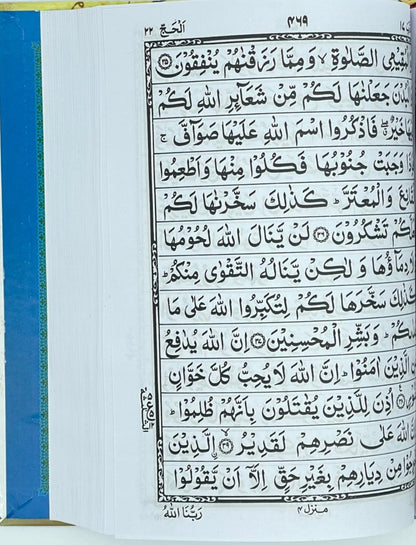 اَلْحَجّ ٢٢ ٤٦٩ ١٧
الصَّلٰوةِ ۙ وَمِمَّا رَزَقْنٰهُمْ يُنْفِقُوْنَ ﴿٣٥﴾
جَعَلْنٰهَا لَكُمْ مِّنْ شَعَآئِرِ اللّٰهِ لَكُمْ
خَيْرٌ ۖ فَاذْكُرُوا اسْمَ اللّٰهِ عَلَيْهَا صَوَآفَّ ۚ
وَجَبَتْ جُنُوْبُهَا فَكُلُوْا مِنْهَا وَاَطْعِمُوا
وَالْمُعْتَرَّ ؕ كَذٰلِكَ سَخَّرْنٰهَا لَكُمْ
تَشْكُرُوْنَ ﴿٣٦﴾ لَنْ يَّنَالَ اللّٰهَ لُحُوْمُهَا
دِمَآؤُهَا وَلٰكِنْ يَّنَالُهُ التَّقْوٰى مِنْكُمْ ؕ
سَخَّرَهَا لَكُمْ لِتُكَبِّرُوا اللّٰهَ عَلٰى مَا
وَبَشِّرِ الْمُحْسِنِيْنَ ﴿٣٧﴾ اِنَّ اللّٰهَ يُدٰفِعُ
الَّذِيْنَ اٰمَنُوْا ؕ اِنَّ اللّٰهَ لَا يُحِبُّ كُلَّ خَوَّانٍ
اُذِنَ لِلَّذِيْنَ يُقٰتَلُوْنَ بِاَنَّهُمْ ظُلِمُوْا ؕ
اللّٰهَ عَلٰى نَصْرِهِمْ لَقَدِيْرُ ﴿٣٩﴾ ۨالَّذِيْنَ
مِنْ دِيَارِهِمْ بِغَيْرِ حَقٍّ اِلَّاۤ اَنْ يَّقُوْلُوْا
رَبُّنَا اللّٰهُ منزل ٤